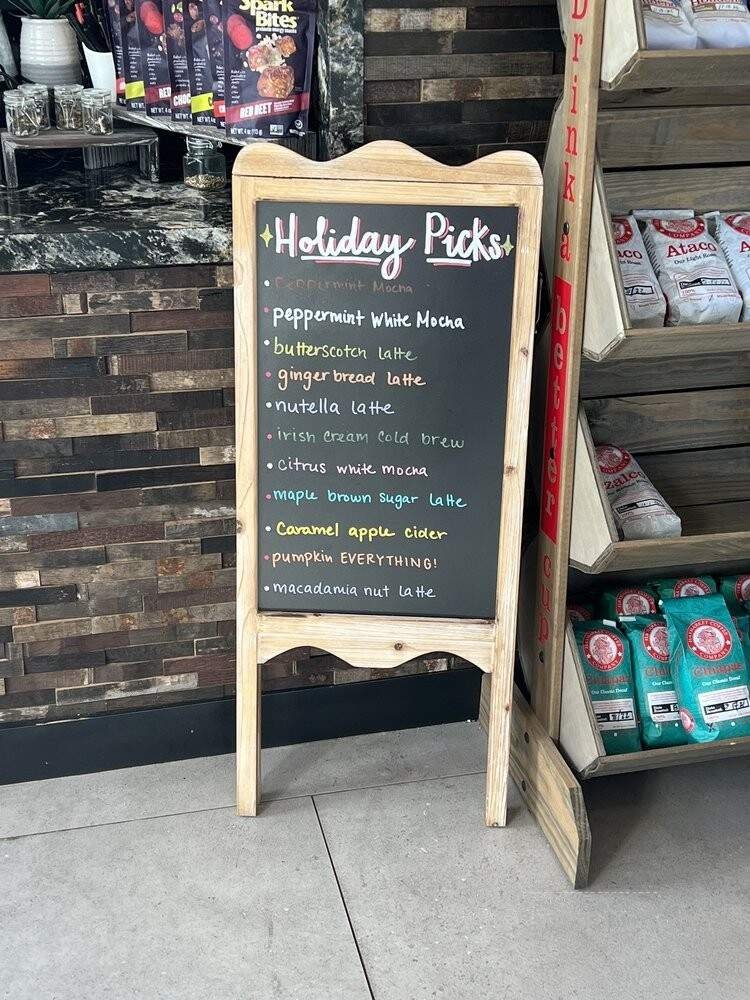 Spark
Bites
RED BEET
NET WT. 4 oz (113 g)
Holiday Picks
Peppermint Mocha
peppermint White Mocha
butterscotch latte
gingerbread latte
nutella latte
irish cream cold brew
citrus white mocha
maple brown sugar latte
Caramel apple cider
pumpkin EVERYTHING!
macadamia nut latte
Drink a better cup
Ataco
Our Light Roast
COMPANY
Our Classic Decaf